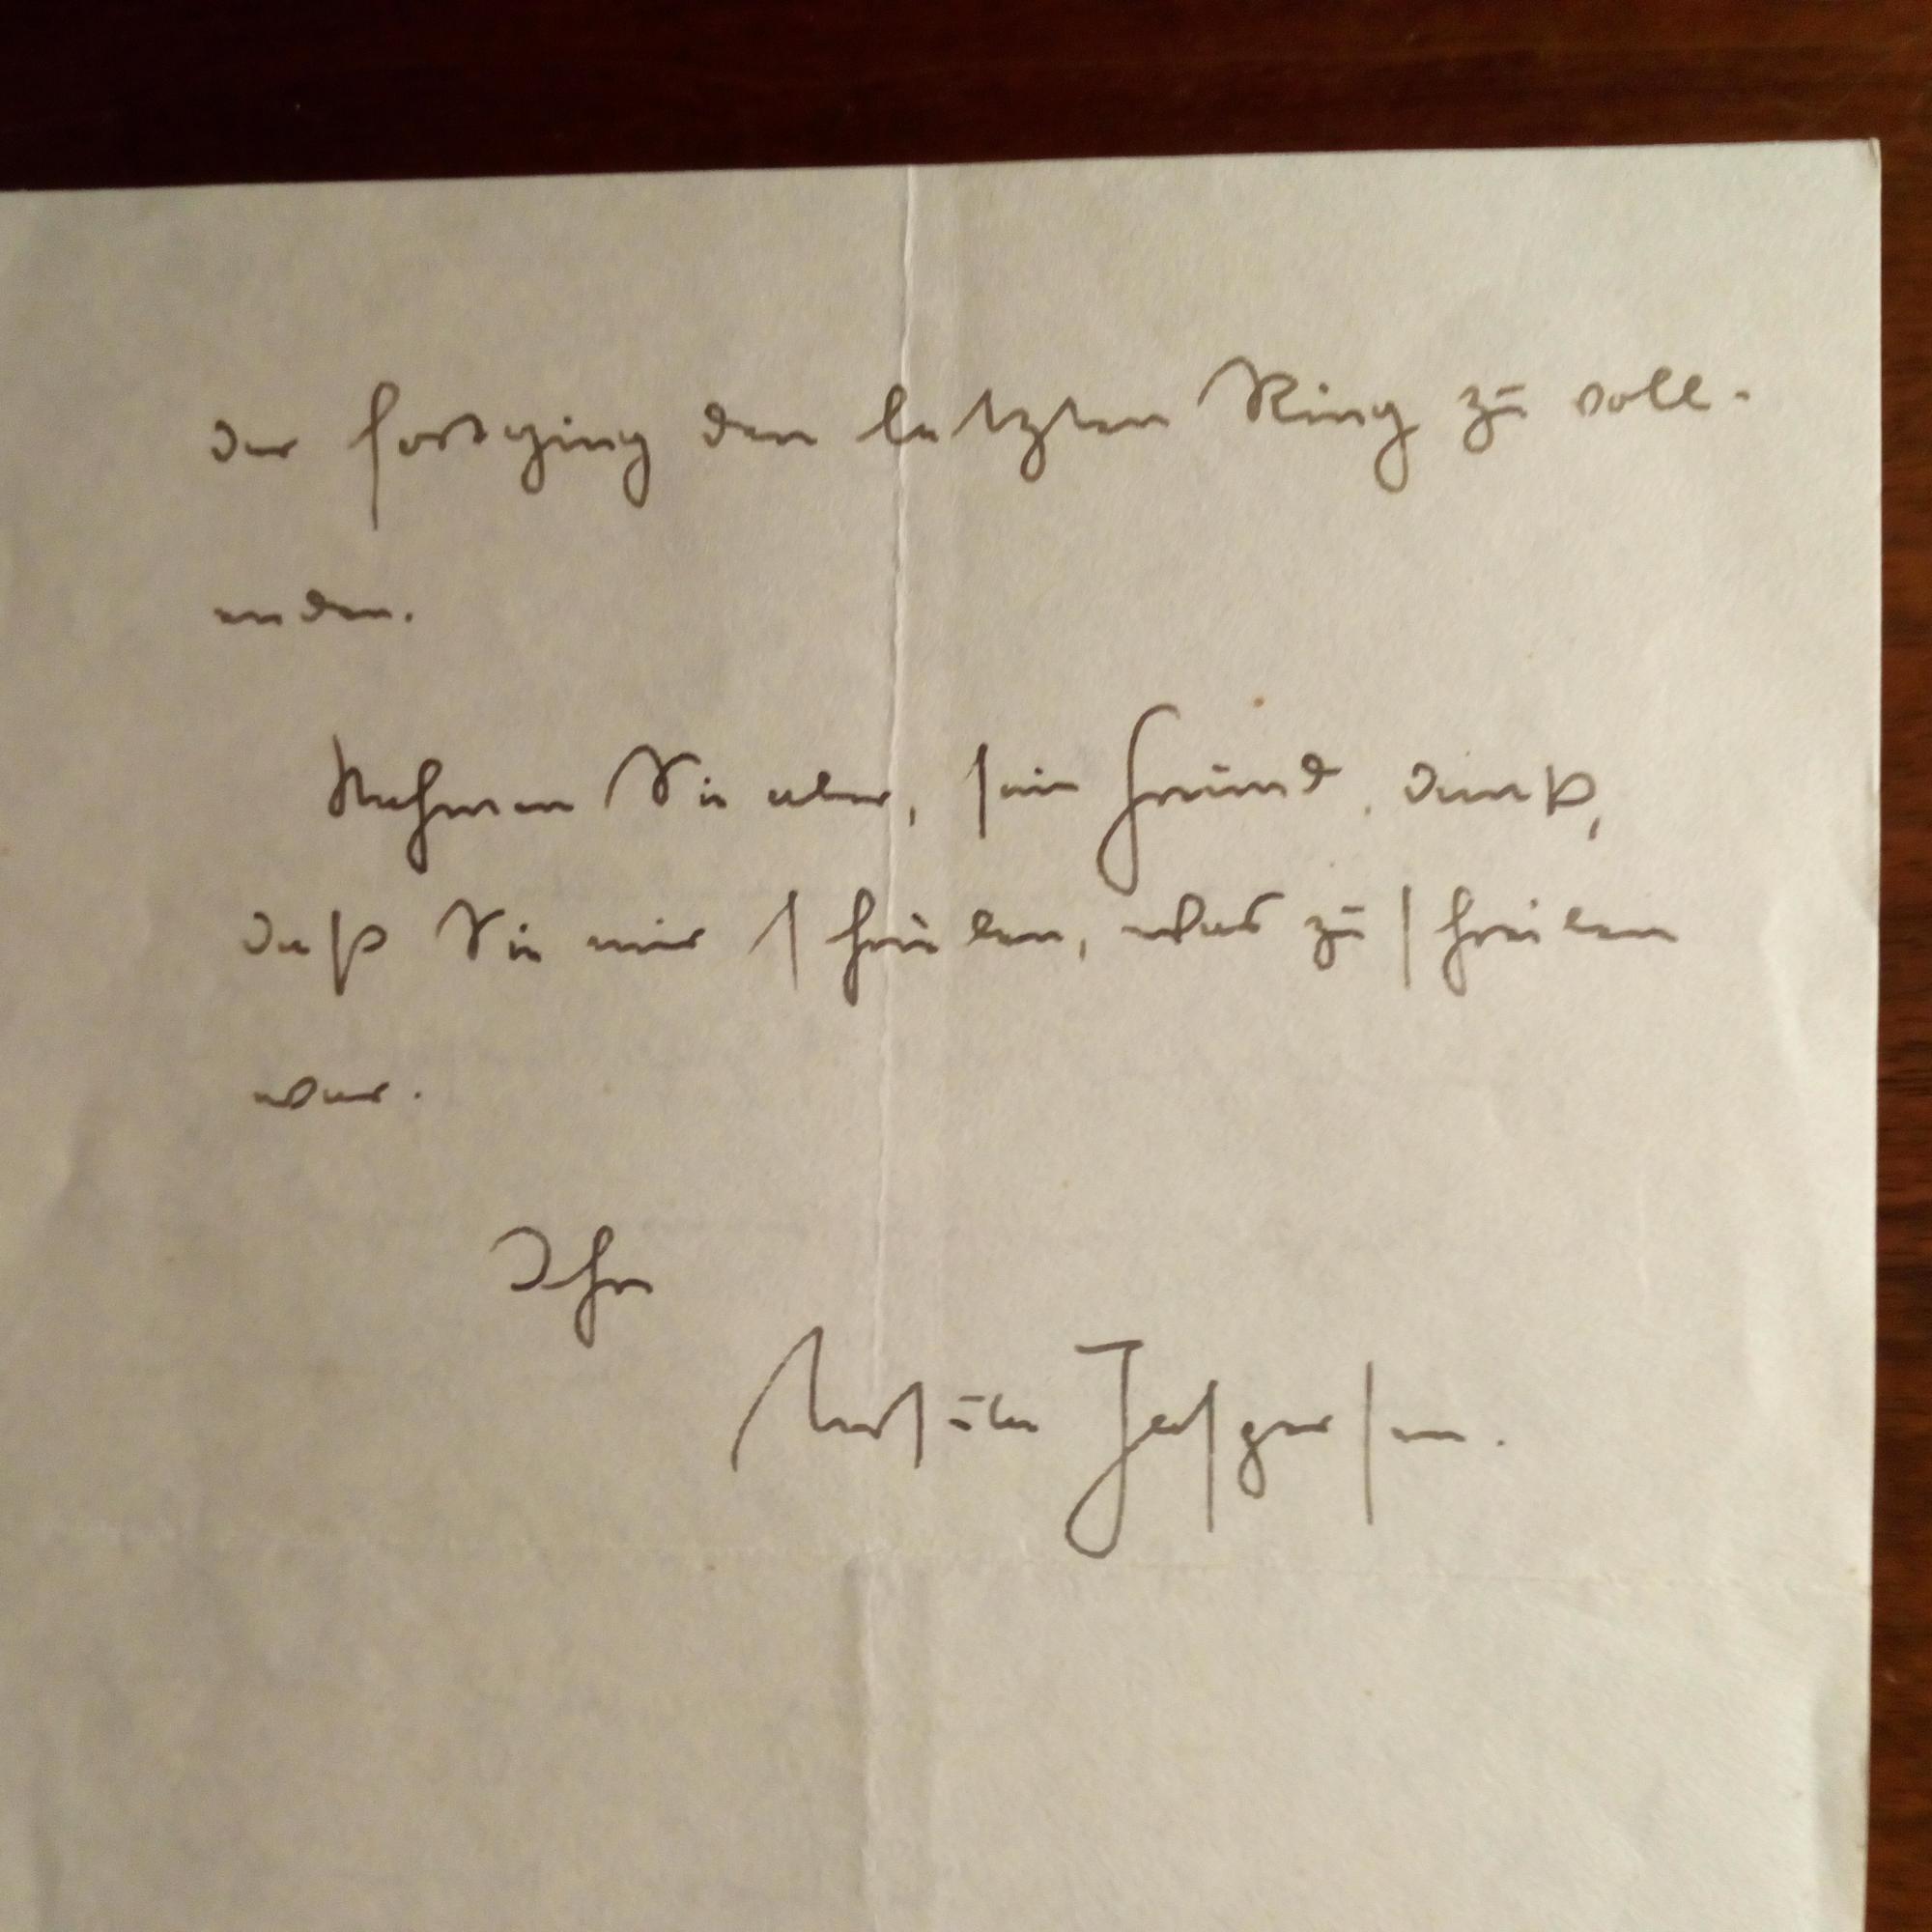 der fortging den letzten Ring zu voll-
enden.
Nehmen Sie aber, sein Freund, Dank,
daß Sie mir schrieben, was zu schreiben
war.
Ihr